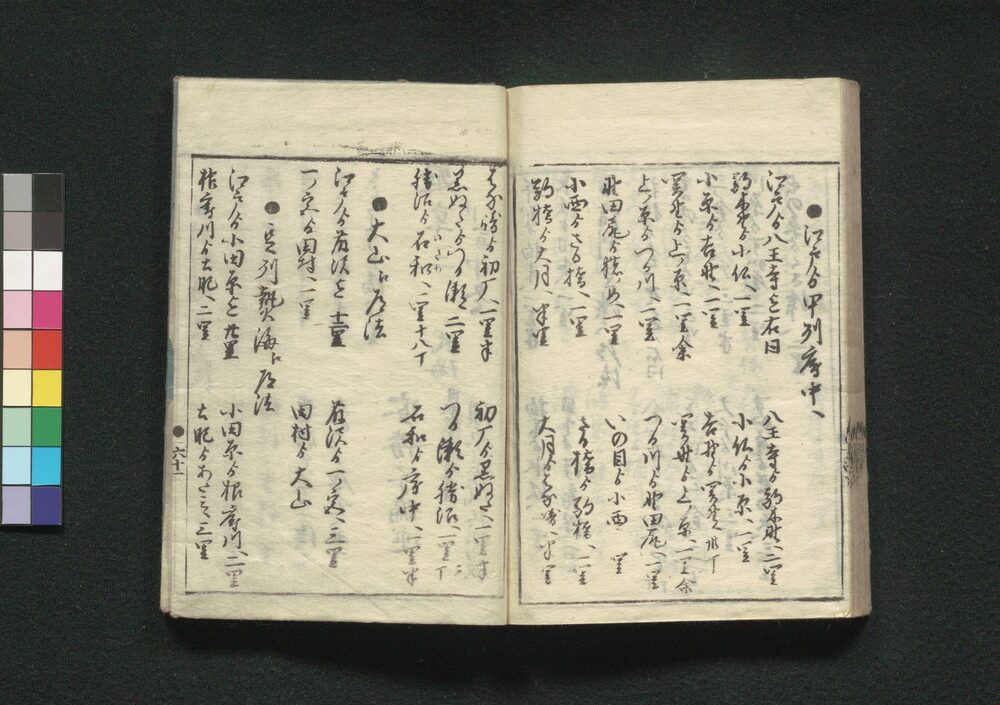 ●江戸ゟ甲州府中へ
江戸ゟ八王寺迄右同　八王寺ゟ駒木野へ二里
駒木野ゟ小仏へ一里　小仏ゟ小原へ一里
小原ゟ吉野へ一里　吉野ゟ関野へ丁
関野ゟ上ノ原へ一里余　関野ゟ上ノ原へ一里余
上ノ原ゟつる川へ一里　つる川ゟ野田尻へ一里
野田尻ゟへ一里　いの目ゟ小西　里
小西ゟさる橋へ一里　さる橋ゟ駒橋へ一里
駒橋ゟ大月へ半里　大月ゟはな咲へ半里
はな咲ゟ初かりへ一里半　初かりゟ黒のたへ一里半
黒のたゟつる瀬へ二里　つる瀬ゟ勝沼へ一里丁
勝沼ゟ石和へ一里十八丁　石和ゟ府中へ一里半
●大山江道法
江戸ゟ藤沢迄十二里　藤沢ゟ一ノ宮へ三里
一ノ宮ゟ田村へ一里　田村ゟ大山
●豆州熱海江道法
江戸ゟ小田原迄廿里　小田原ゟ根府川へ二里
根府川ゟ土肥へ二里　土肥ゟあたミへ三里
●六十一